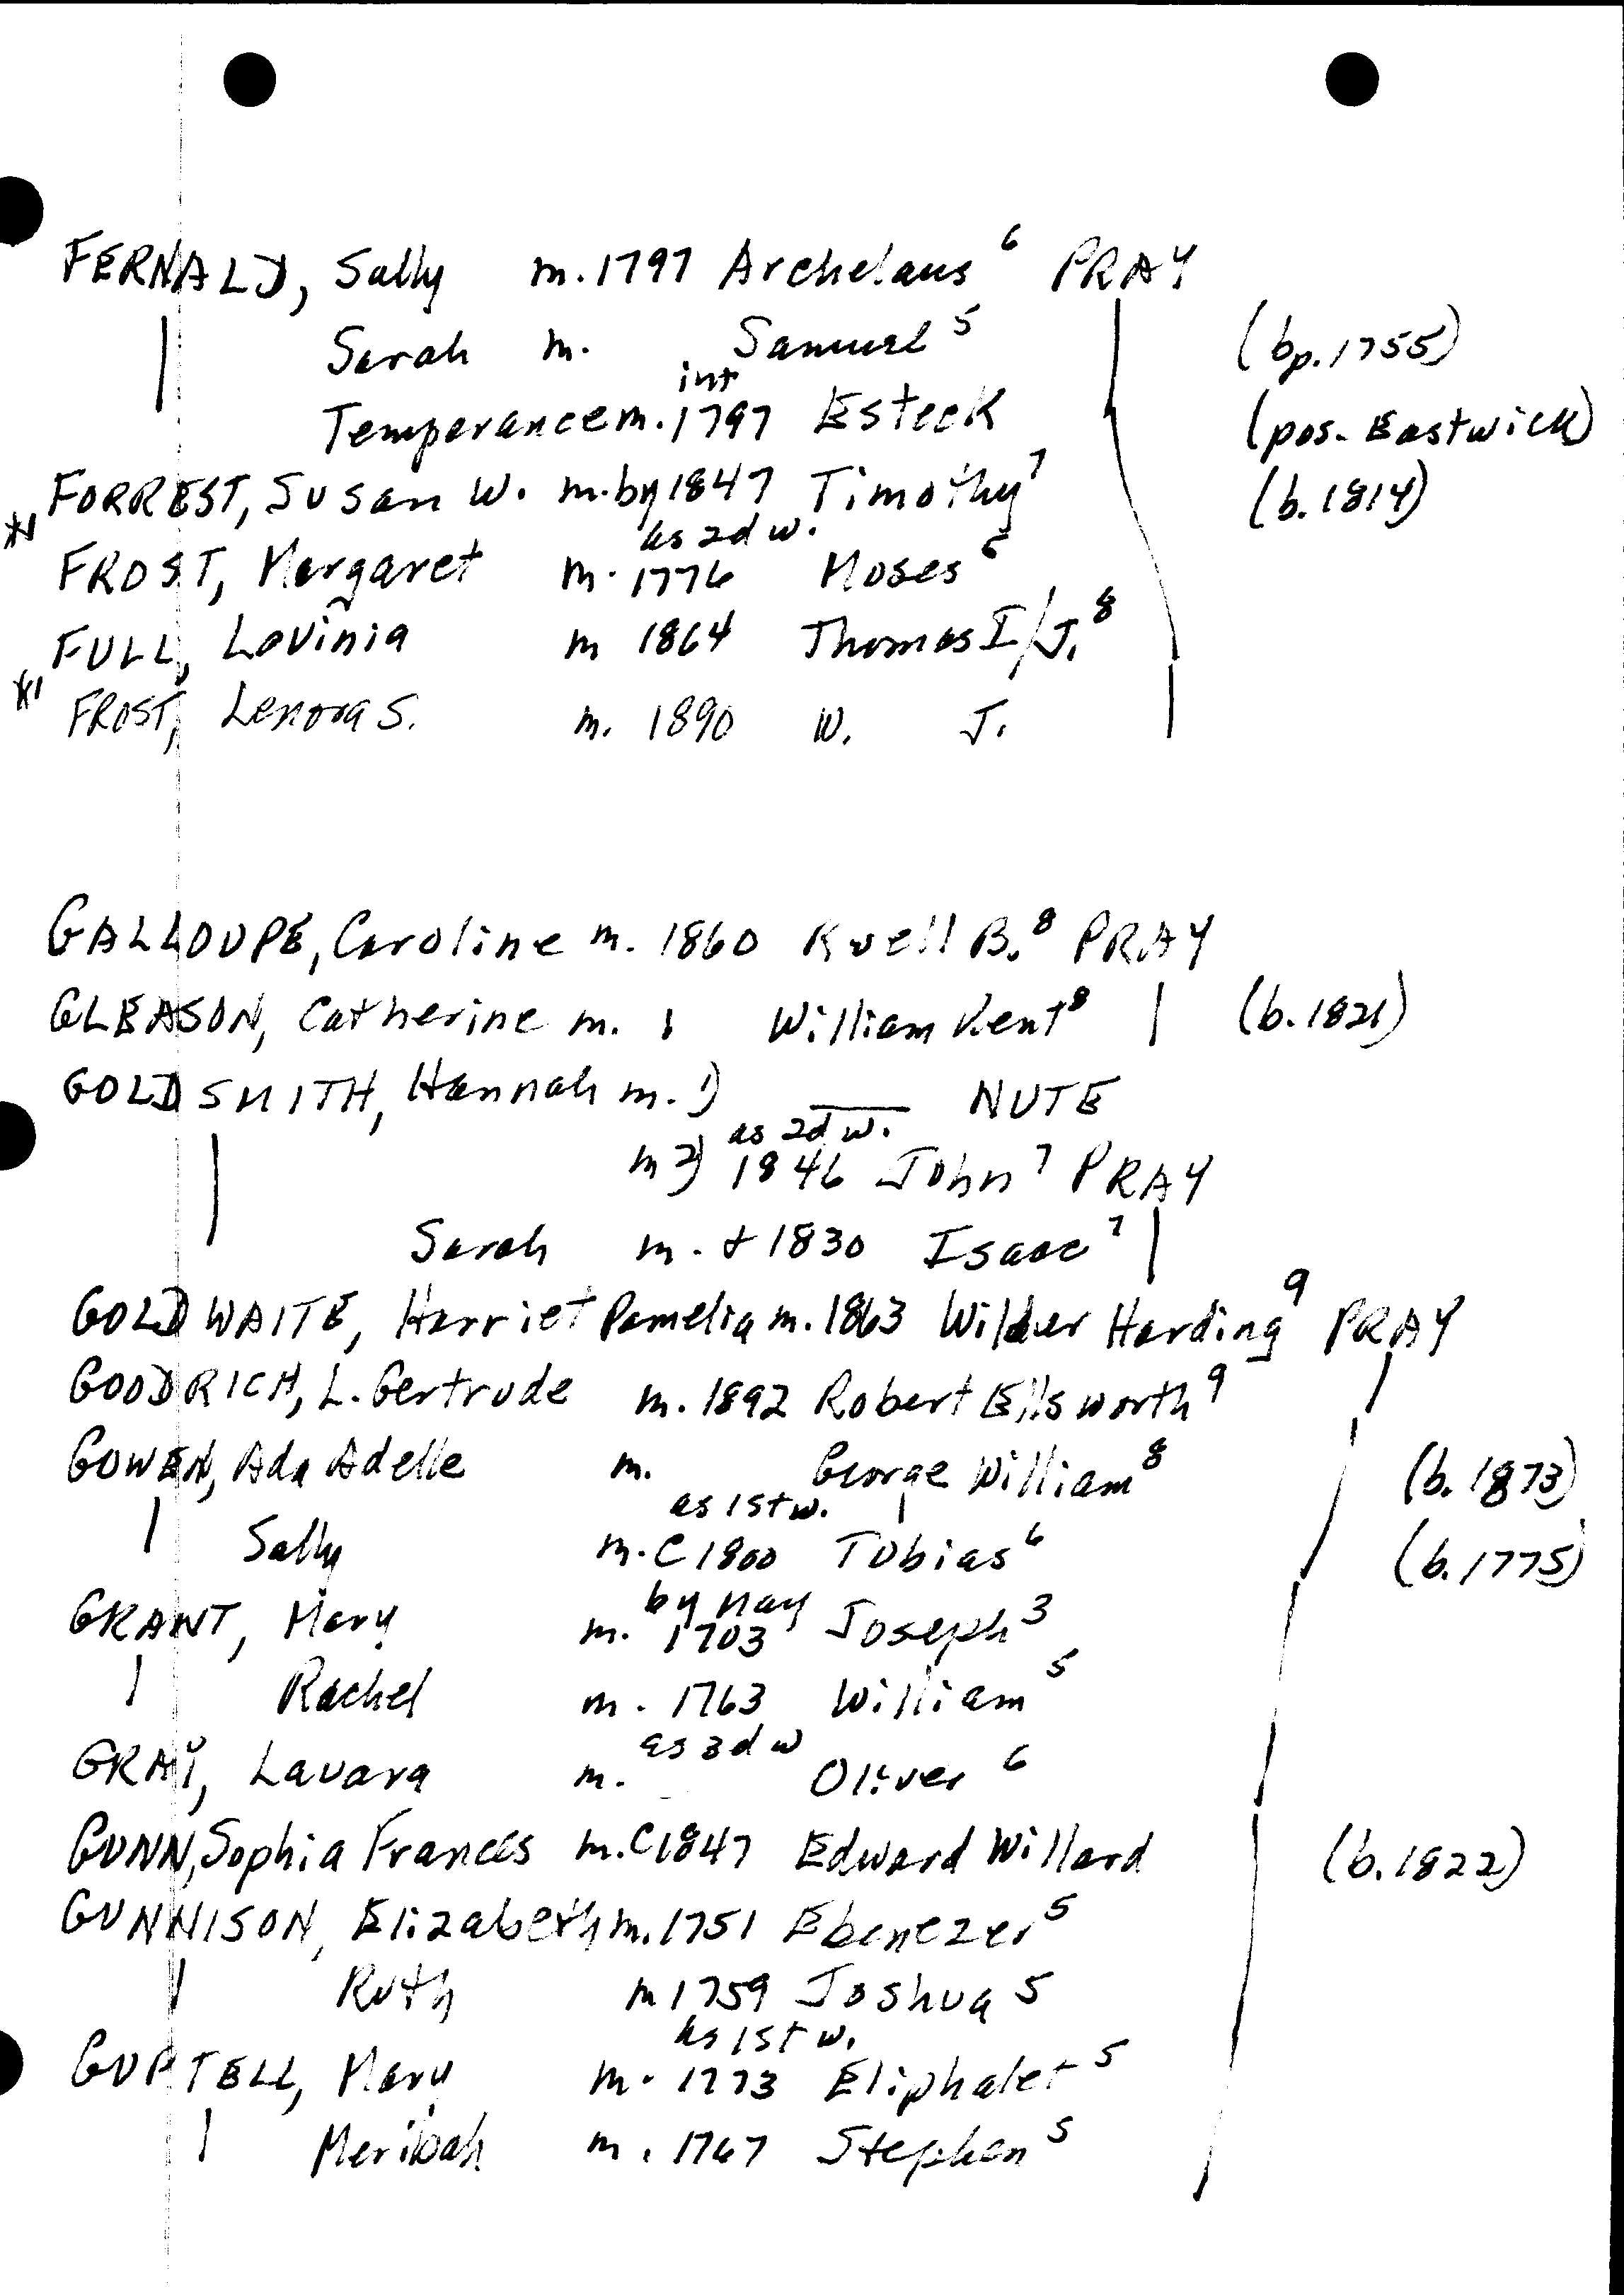 FERNALD, Sally m. 1797 Archelaus⁶ PRAY
Sarah m. Samuel⁵ (bp. 1755)
int
Temperance m. 1797 Esteck (pos. Eastwick)
FORREST, Susan W. m. by 1847 Timothy⁷ (b. 1814)
as 2d w.
FROST, Margaret m. 1776 Moses⁶
FULL, Lovinia m 1864 Thomas I/J.⁸
FROST, Lenora S. m. 1890 W. J.
GALLOUPE, Caroline m. 1860 Ruell B.⁸ PRAY
GLEASON, Catherine m. William Kent⁸ (b. 1821)
GOLDSMITH, Hannah m. 1) ___ NUTE
as 2d w.
m 2) 1846 John⁷ PRAY
Sarah m. + 1830 Isaac⁷
GOLDWAITE, Harriet Pamelia m. 1863 Wilder Harding⁹ PRAY
GOODRICH, L. Gertrude m. 1892 Robert Ellsworth⁹
GOWEN, Ada Adelle m. George William⁸ (b. 1873)
as 1st w.
Sally m. C 1800 Tobias⁶ (b. 1775)
by May
GRANT, Mary m. 1703 Joseph³
Rachel m. 1763 William⁵
as 3d w
GRAY, Lavara m. Oliver⁶
GUNN, Sophia Frances m. C1847 Edward Willard (b. 1822)
GUNNISON, Elizabeth m. 1751 Ebenezer⁵
Ruth m 1759 Joshua⁵
as 1st w.
GUPTELL, Mary m. 1773 Eliphalet⁵
Meribah m. 1767 Stephen⁵